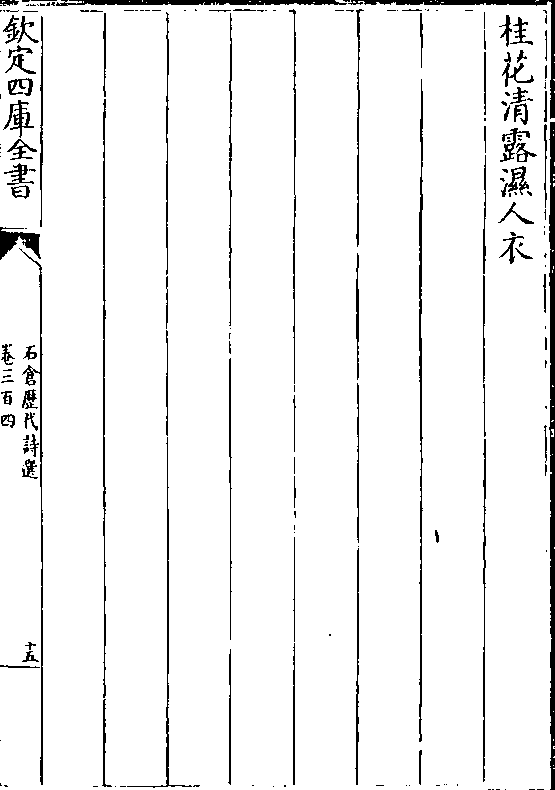 桂花清露濕人衣
欽定四庫全書
石倉歴代詩選
卷三百四
十五